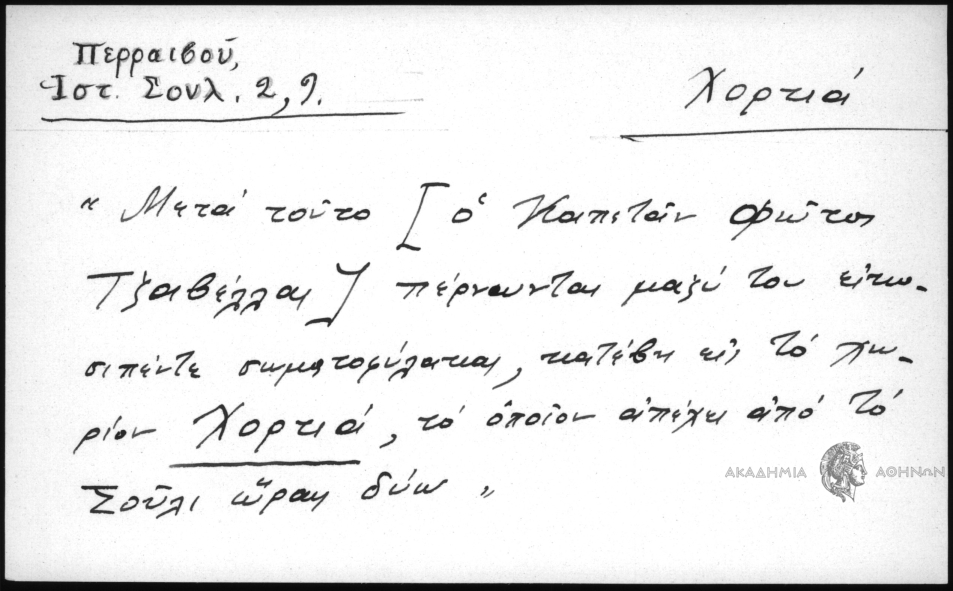 Περραιβού,
Ἱστ. Σουλ. 2, 9.
Χορτιά
"Μετά τοῦτο [ὁ Καπετάν Φῶτος
Τζαβέλλας] πέρνωντας μαζύ του εἰκο-
σιπέντε σωματοφύλακας, κατέβη εἰς τό χω-
ρίον Χορτιά, τό ὁποῖον ἀπέχει ἀπό τό
Σοῦλι ὥρας δύω"
ΑΚΑΔΗΜΙΑ ΑΘΗΝΩΝ